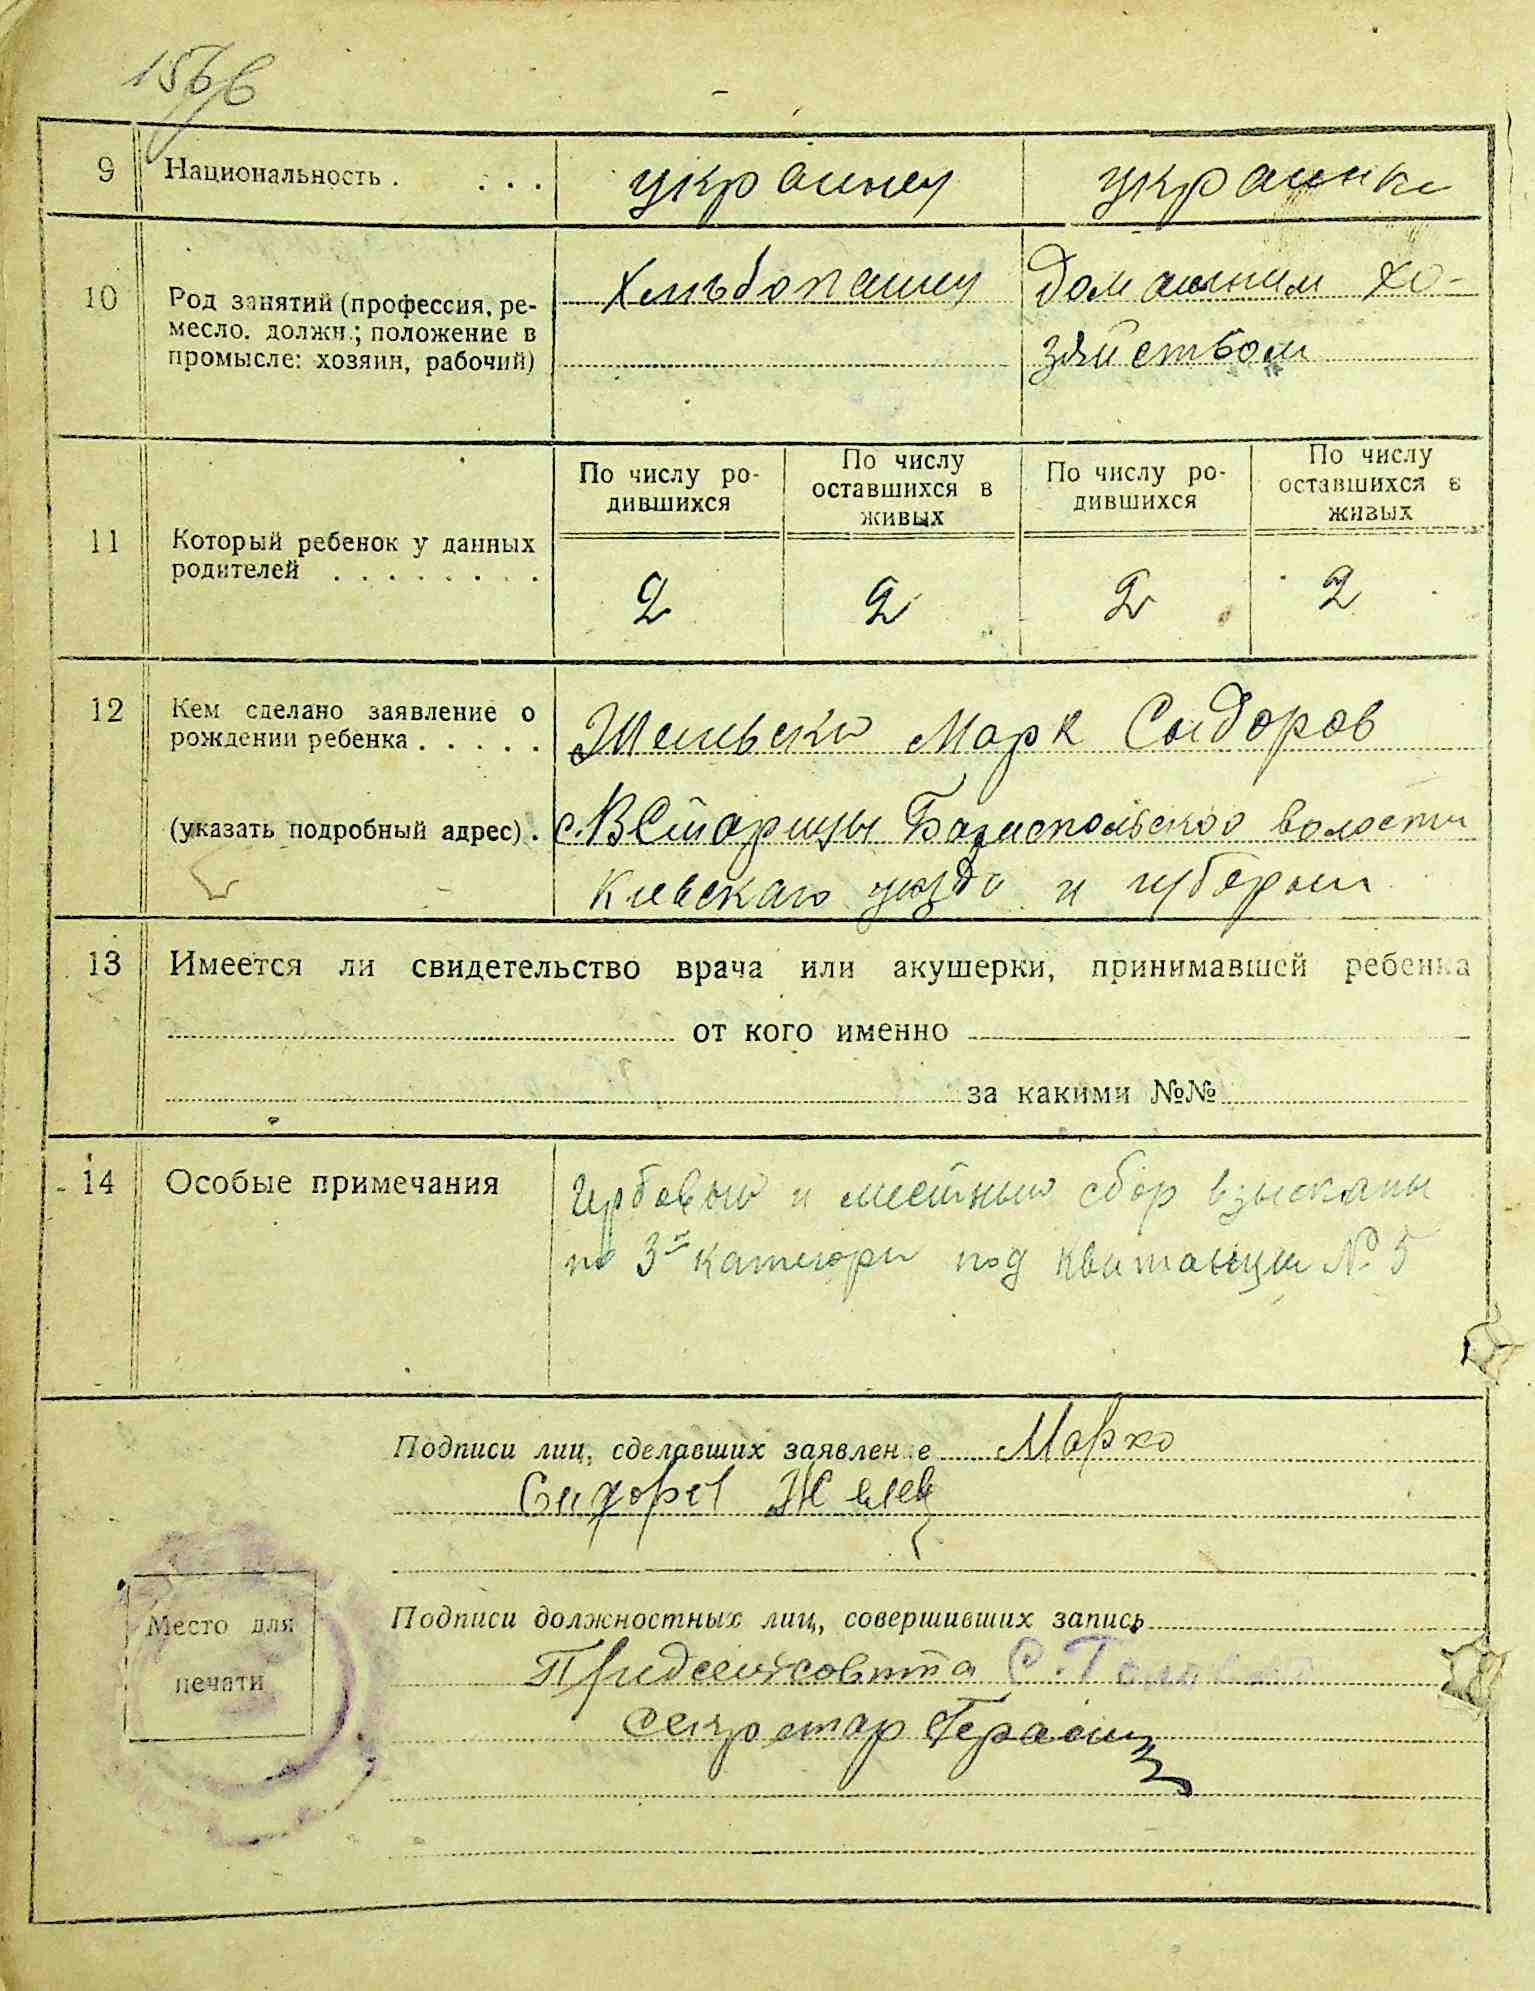 9 Национальность . . . . украинец украинка
10 Род занятий (профессия, ре-
месло. должн.; положение в
промысле: хозяин, рабочий)
Хлѣбопашец
Домашним хо-
зяйством
11 Который ребенок у данных
родителей . . . . . . . .
По числу ро-
дившихся
По числу
оставшихся в
живых
По числу ро-
дившихся
По числу
оставшихся в
живых
2 2 2 2
12 Кем сделано заявление о
рождении ребенка . . . . .
(указать подробный адрес) .
Марк Сидоров
с. В Старицы Бориспольской волости
Киевскаго уезда и губерни
13 Имеется ли свидетельство врача или акушерки, принимавшей ребенка
от кого именно
за какими №№
14 Особые примечания
Гербовый и местный сбор взысканы
по 3й категори под квитанции № 5
Подписи лиц, сделавших заявление Марко
Сидоров
Подписи должностных лиц, совершивших запись
Место для
печати
Секретар